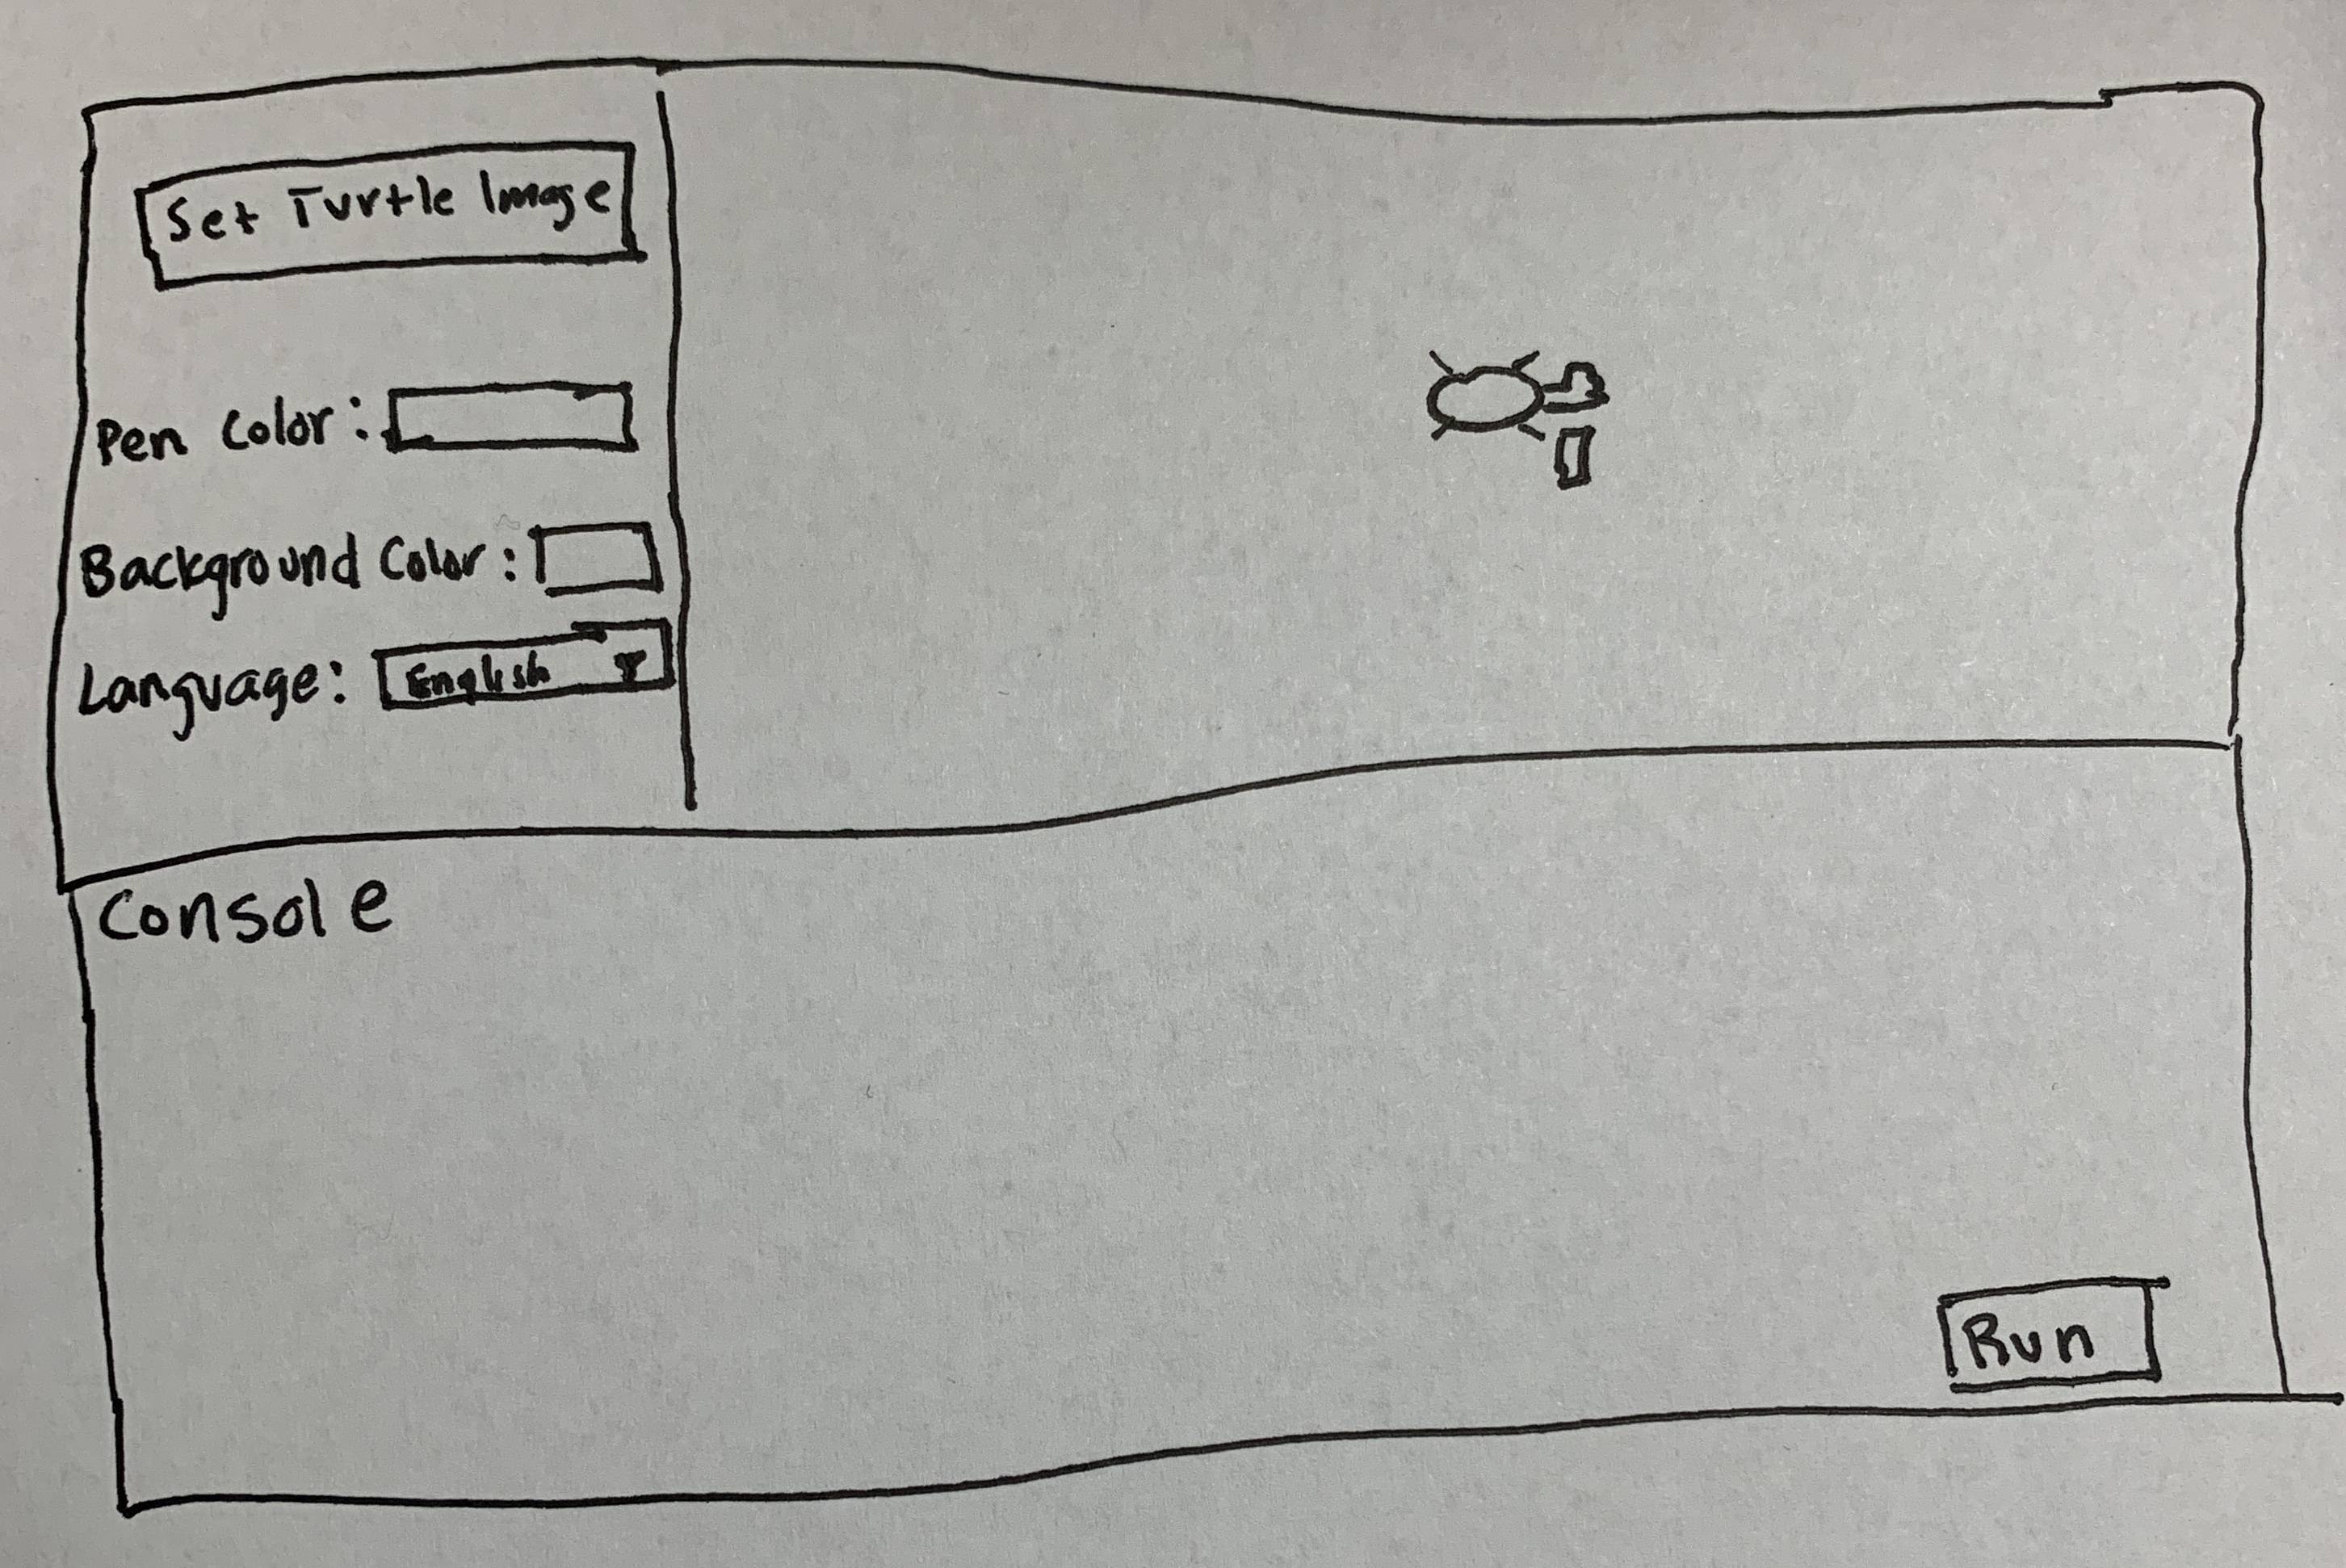 Set Turtle Image
Pen Color:
Background Color:
Language: English
Console
Run